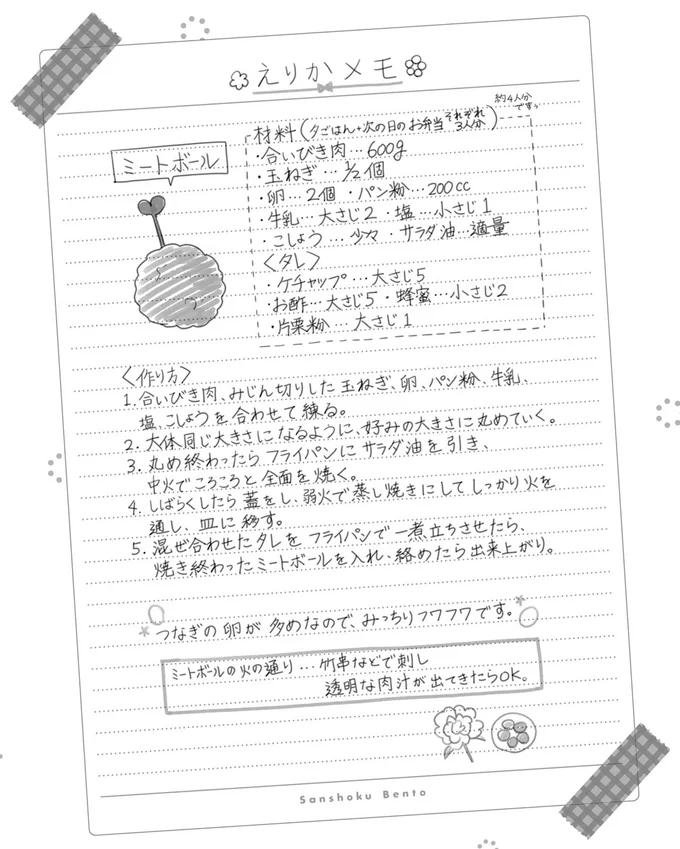 えりかメモ
約4人分
ですっ
材料(夕ごはん+次の日のお弁当 それぞれ3人分)
ミートボール
・合いびき肉…600g
・玉ねぎ…1/2個
・卵…2個 ・パン粉…200cc
・牛乳…大さじ2 ・塩…小さじ1
・こしょう…少々 ・サラダ油…適量
〈タレ〉
・ケチャップ…大さじ5
・お酢…大さじ5 ・蜂蜜…小さじ2
・片栗粉…大さじ1
〈作り方〉
1.合いびき肉、みじん切りした玉ねぎ、卵、パン粉、牛乳、
塩、こしょうを合わせて練る。
2.大体同じ大きさになるように、好みの大きさに丸めていく。
3.丸め終わったらフライパンにサラダ油を引き、
中火でころころと全面を焼く。
4.しばらくしたら蓋をし、弱火で蒸し焼きにしてしっかり火を
通し、皿に移す。
5.混ぜ合わせたタレをフライパンで一煮立ちさせたら、
焼き終わったミートボールを入れ、絡めたら出来上がり。
つなぎの卵が多めなので、みっちりフワフワです。
ミートボールの火の通り…竹串などで刺し
透明な肉汁が出てきたらOK。
Sanshoku Bento